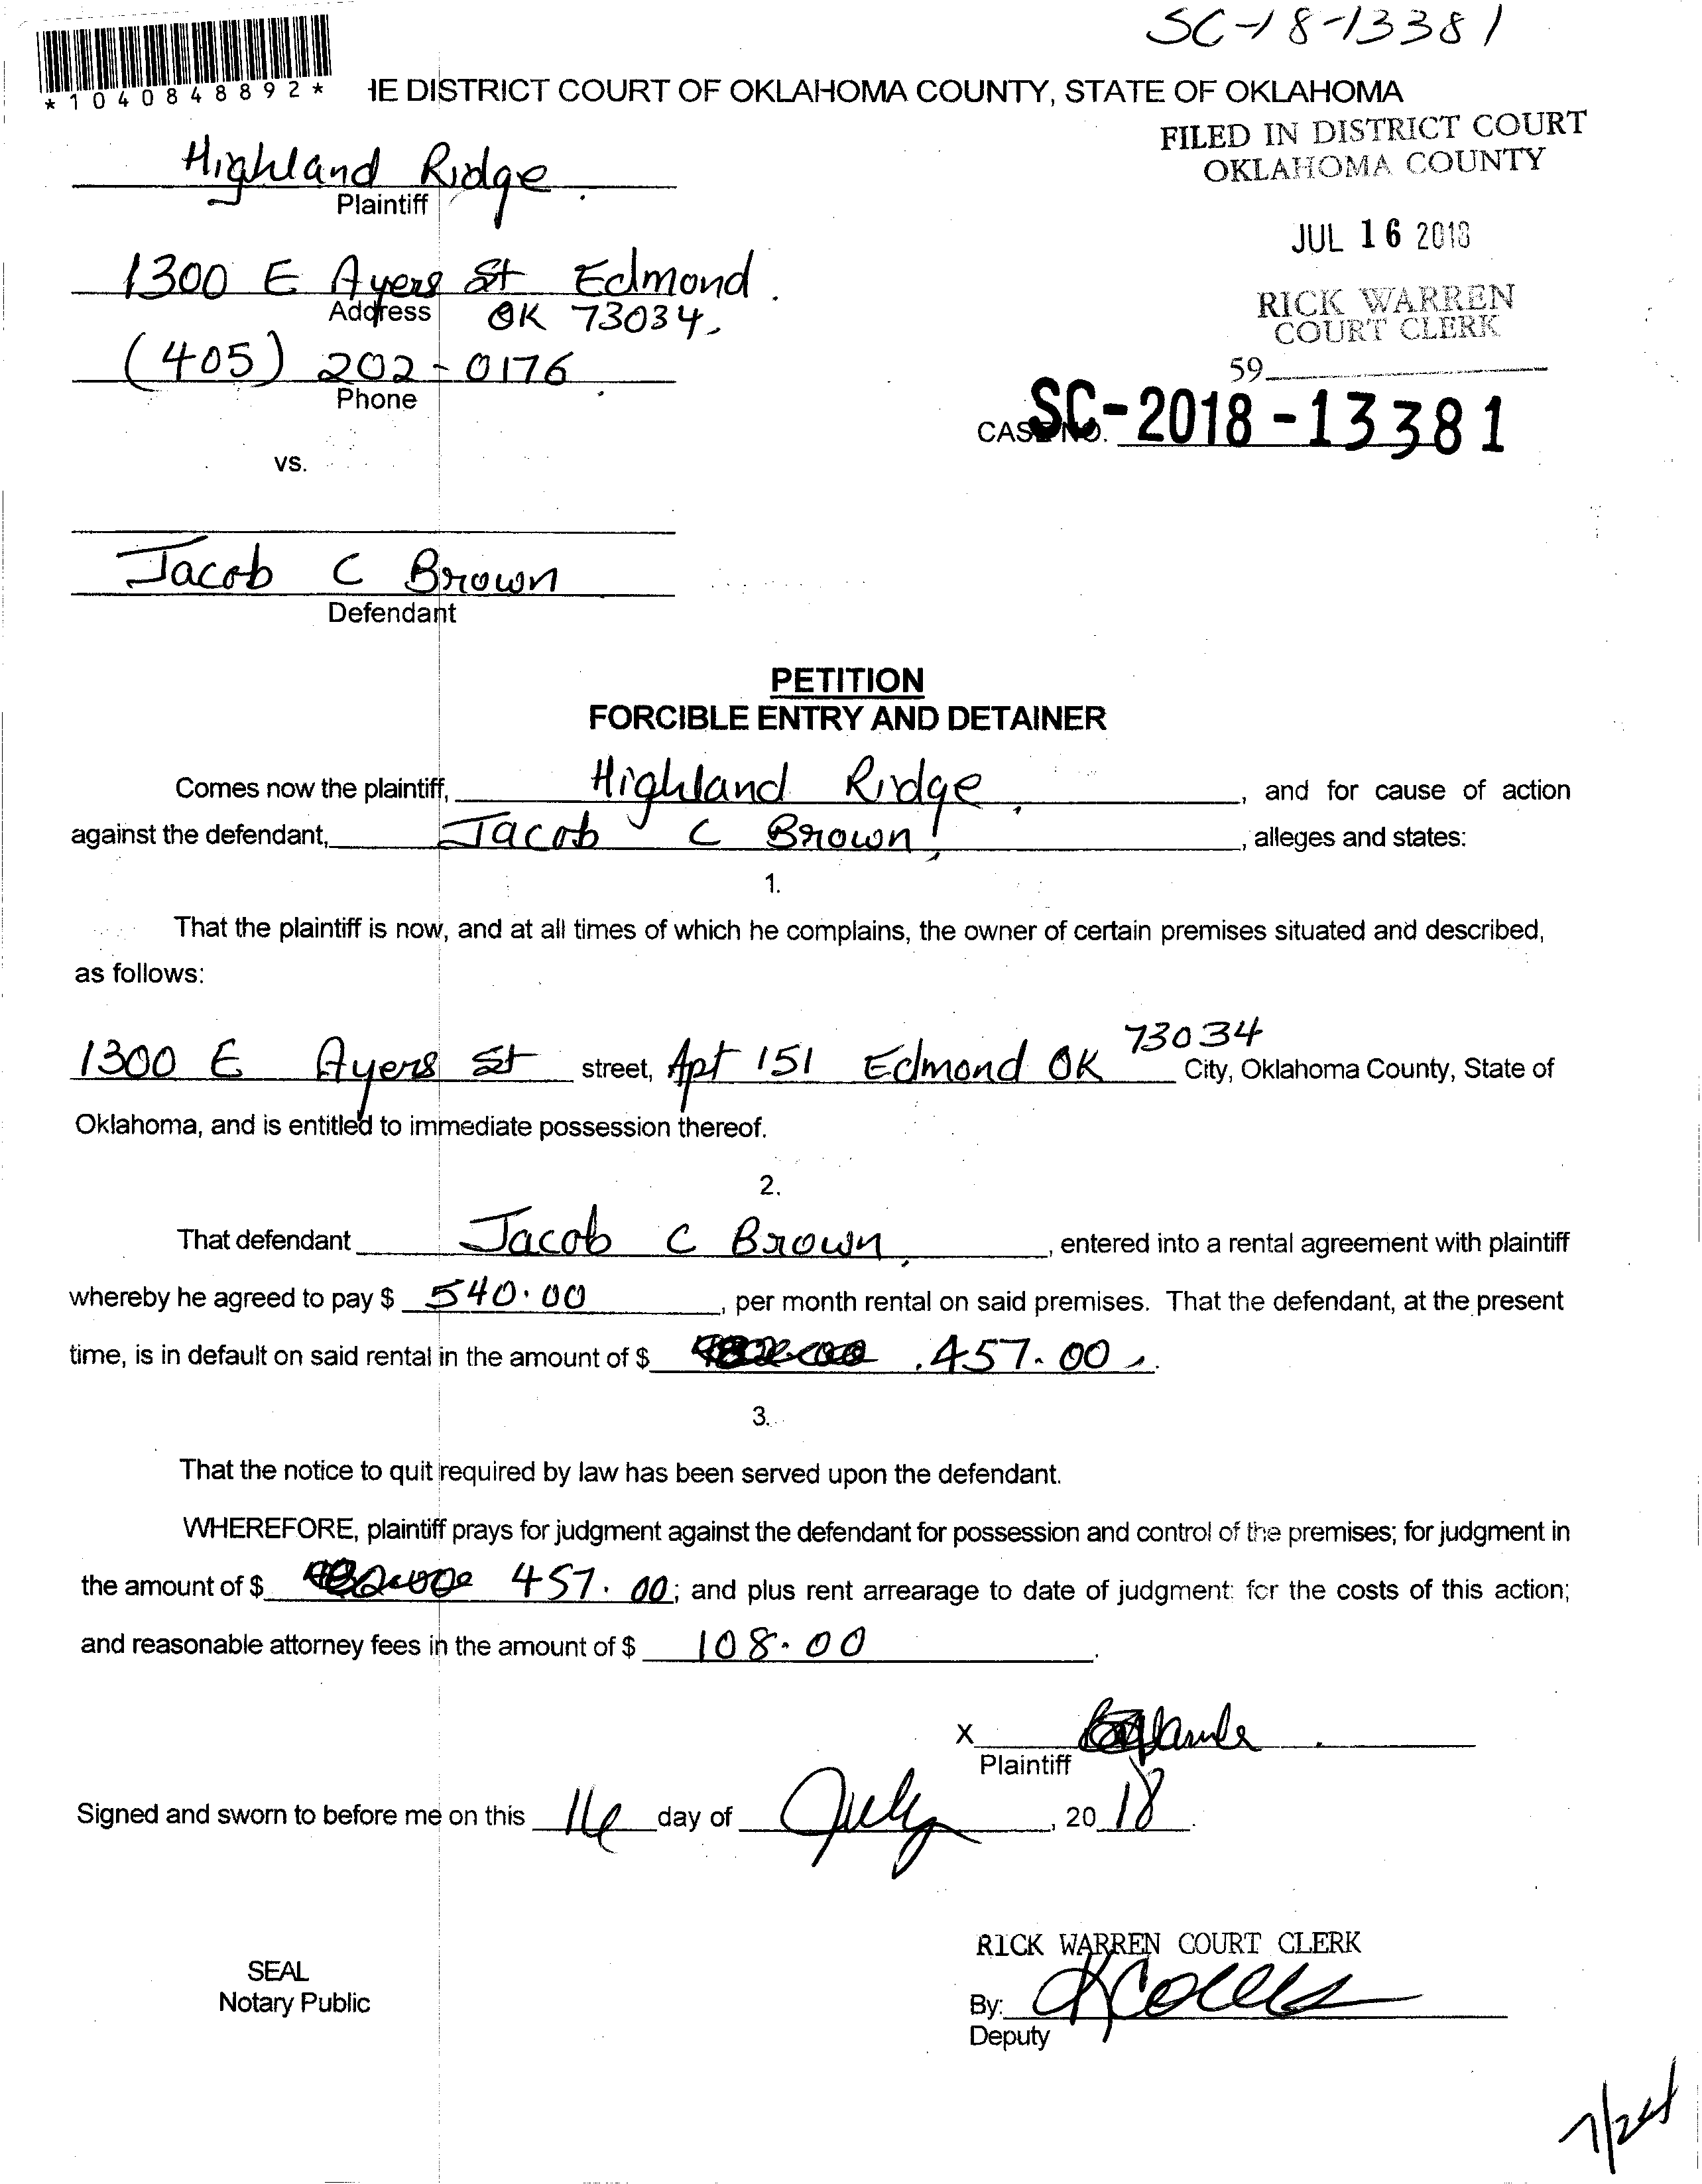 SC-18-13381
*1040848892*
HE DISTRICT COURT OF OKLAHOMA COUNTY, STATE OF OKLAHOMA
FILED IN DISTRICT COURT
OKLAHOMA COUNTY
Highland Ridge.
Plaintiff
JUL 16 2018
1300 E Ayers St Edmond.
Address OK 73034.
RICK WARREN
COURT CLERK
(405) 202-0176.
Phone
59
CASE NO. SC-2018-13381
vs.
Jacob C Brown
Defendant
PETITION
FORCIBLE ENTRY AND DETAINER
Comes now the plaintiff, Highland Ridge., and for cause of action
against the defendant, Jacob C Brown, alleges and states:
1.
That the plaintiff is now, and at all times of which he complains, the owner of certain premises situated and described,
as follows:
1300 E Ayers St street, Apt 151 Edmond OK 73034 City, Oklahoma County, State of
Oklahoma, and is entitled to immediate possession thereof.
2.
That defendant Jacob C Brown, entered into a rental agreement with plaintiff
whereby he agreed to pay $ 540.00, per month rental on said premises. That the defendant, at the present
time, is in default on said rental in the amount of $ 457.00.
3.
That the notice to quit required by law has been served upon the defendant.
WHEREFORE, plaintiff prays for judgment against the defendant for possession and control of the premises; for judgment in
the amount of $ 457.00; and plus rent arrearage to date of judgment: for the costs of this action;
and reasonable attorney fees in the amount of $ 108.00.
X
Plaintiff
Signed and sworn to before me on this 16 day of July, 2018.
RICK WARREN COURT CLERK
SEAL
Notary Public
By:
Deputy
7/24